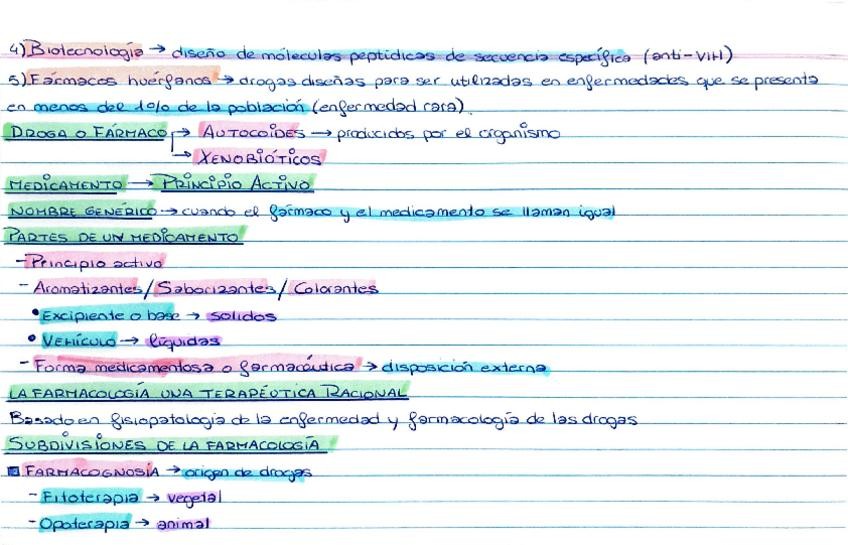 4) Biotecnología → diseño de móleculas peptídicas de secuencia específica (anti-VIH)
5) Fármacos huérfanos → drogas diseñas para ser utilizadas en enfermedades que se presenta
en menos del 1% de la población (enfermedad rara).
DROGA O FÁRMACO → AUTOCOÍDES → producidos por el organismo
→ XENOBIÓTICOS
MEDICAMENTO → PRINCIPIO ACTIVO
NOMBRE GENÉRICO → cuando el fármaco y el medicamento se llaman igual
PARTES DE UN MEDICAMENTO
- Principio activo
- Aromatizantes / Saborizantes / Colorantes
• Excipiente o base → solidos
• VEHÍCULO → líquidas
- Forma medicamentosa o farmacéutica → disposición externa
LA FARMACOLOGÍA UNA TERAPÉUTICA RACIONAL
Basado en fisiopatología de la enfermedad y farmacología de las drogas
SUBDIVISIONES DE LA FARMACOLOGÍA
FARMACOGNOSIA → origen de drogas
- Fitoterapia → vegetal
- Opoterapia → animal